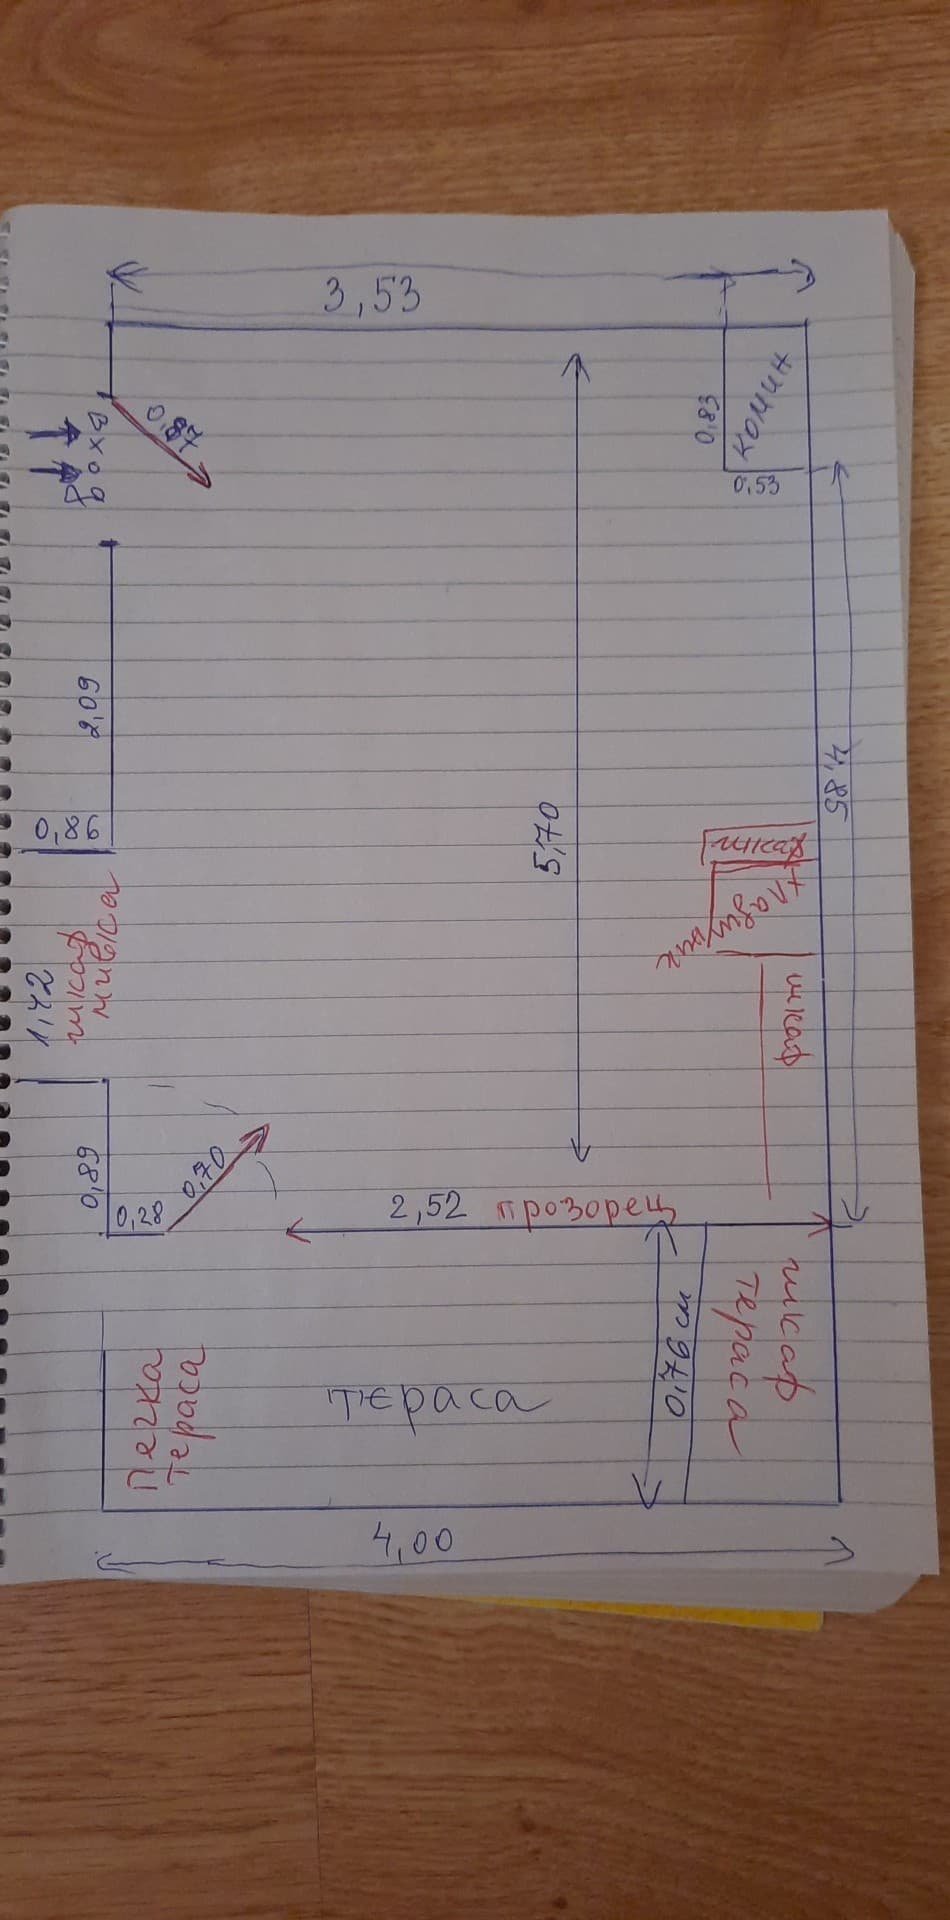 3,53
комин
0,83
0,53
вход
2,09
0,86
5,70
4,85
шкаф
хладилник
шкаф
1,42
шкаф
мивка
0,89
0,28
0,70
2,52 прозорец
0,76 см
шкаф
тераса
печка
тераса
тераса
4,00